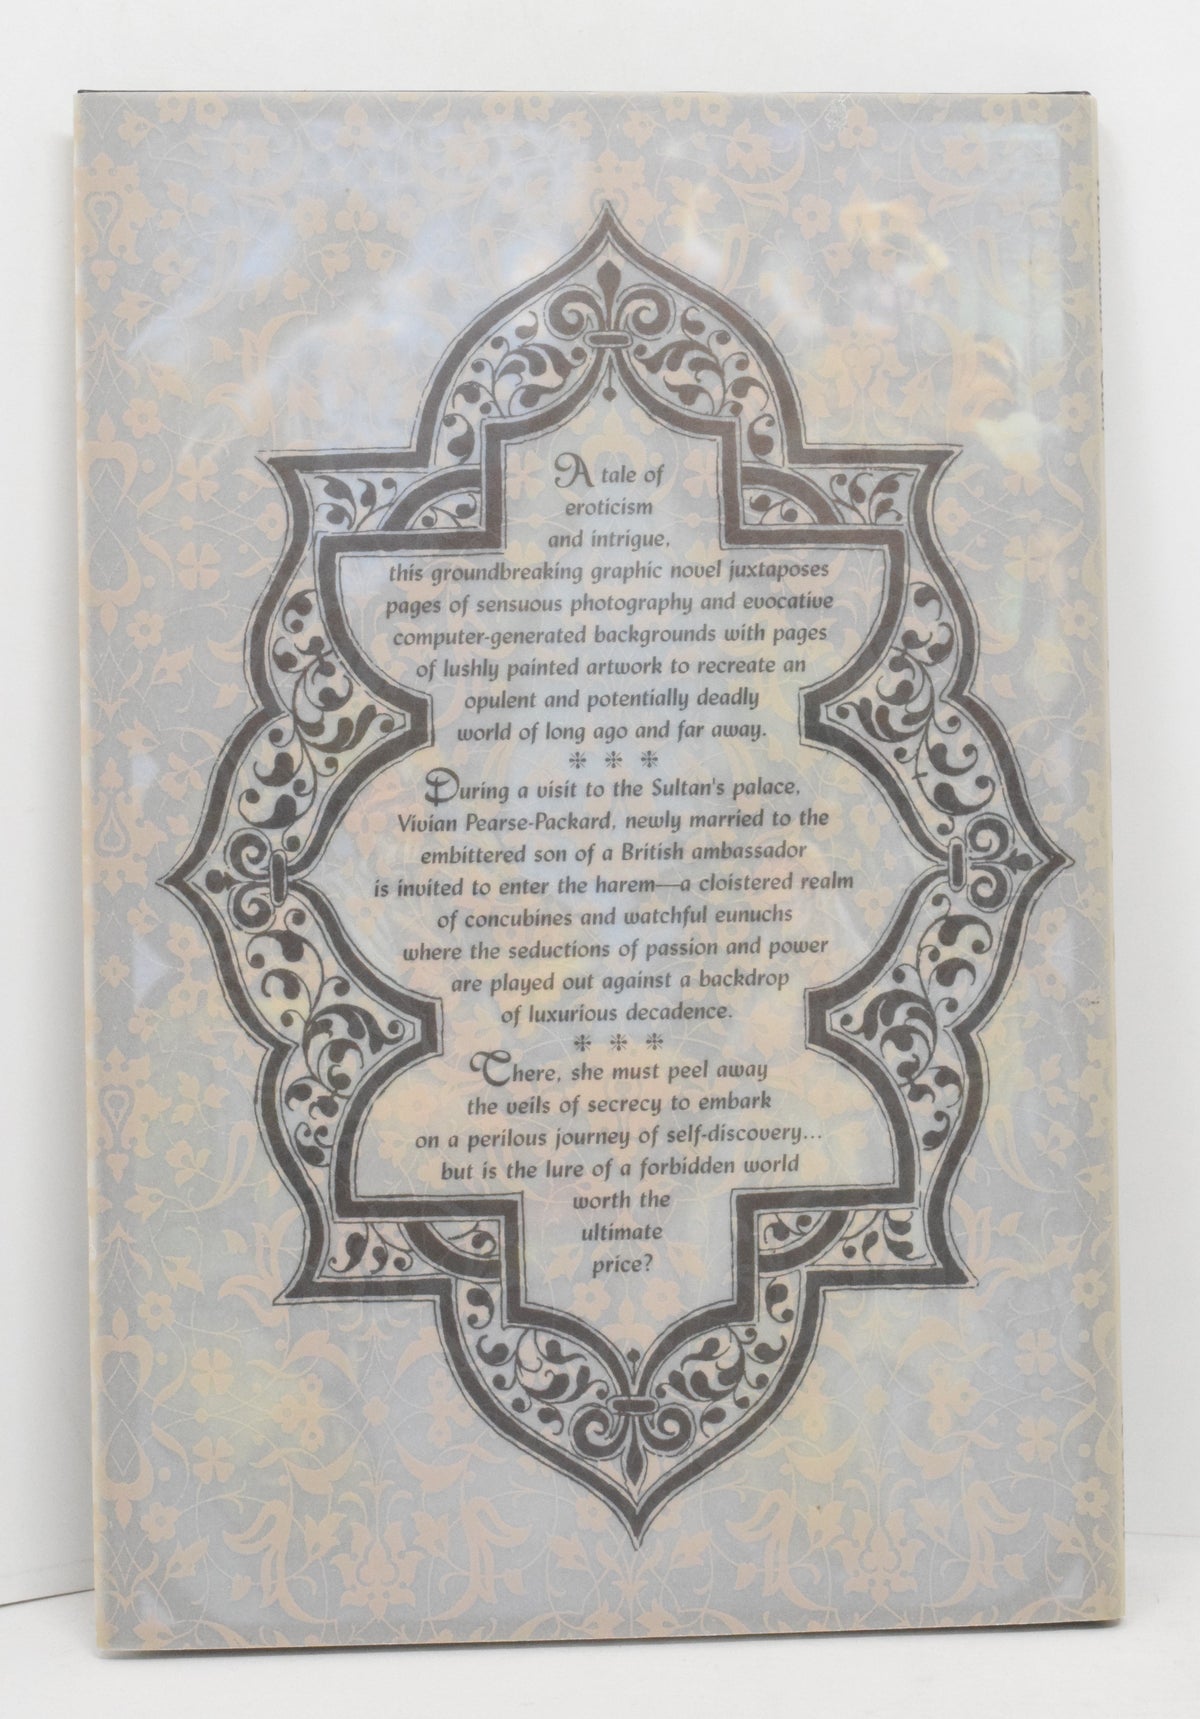 A tale of
eroticism
and intrigue,
this groundbreaking graphic novel juxtaposes
pages of sensuous photography and evocative
computer-generated backgrounds with pages
of lushly painted artwork to recreate an
opulent and potentially deadly
world of long ago and far away.
During a visit to the Sultan's palace,
Vivian Pearse-Packard, newly married to the
embittered son of a British ambassador
is invited to enter the harem—a cloistered realm
of concubines and watchful eunuchs
where the seductions of passion and power
are played out against a backdrop
of luxurious decadence.
There, she must peel away
the veils of secrecy to embark
on a perilous journey of self-discovery...
but is the lure of a forbidden world
worth the
ultimate
price?